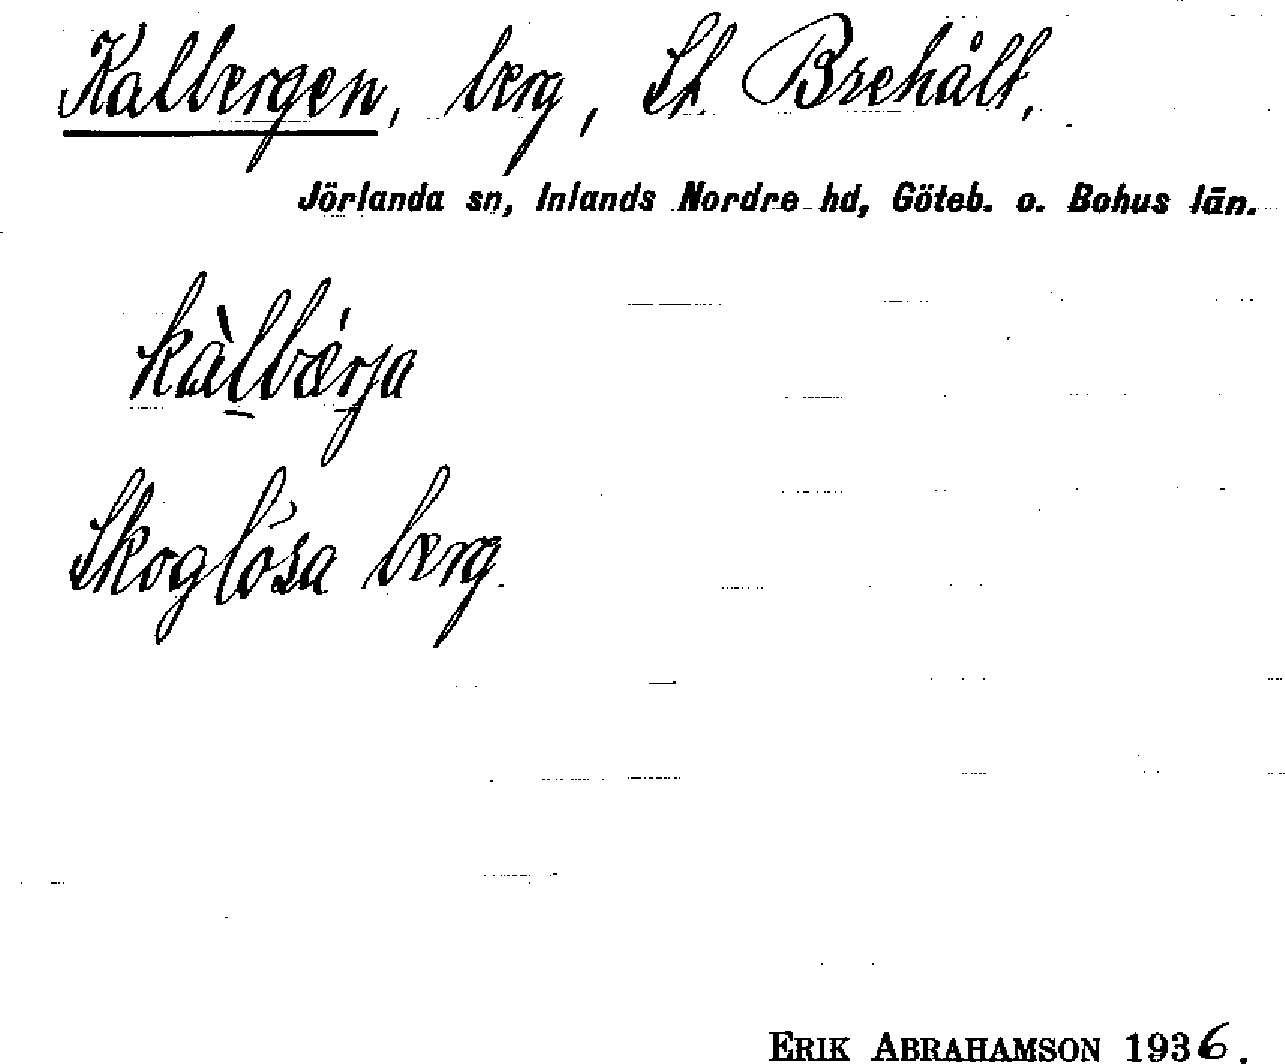 Kalbergen, berg, St. Brehålt.
Jörlanda sn, Inlands Nordre hd, Göteb. o. Bohus län.
kàlbǽrja
Skoglösa berg.
ERIK ABRAHAMSON 1936.